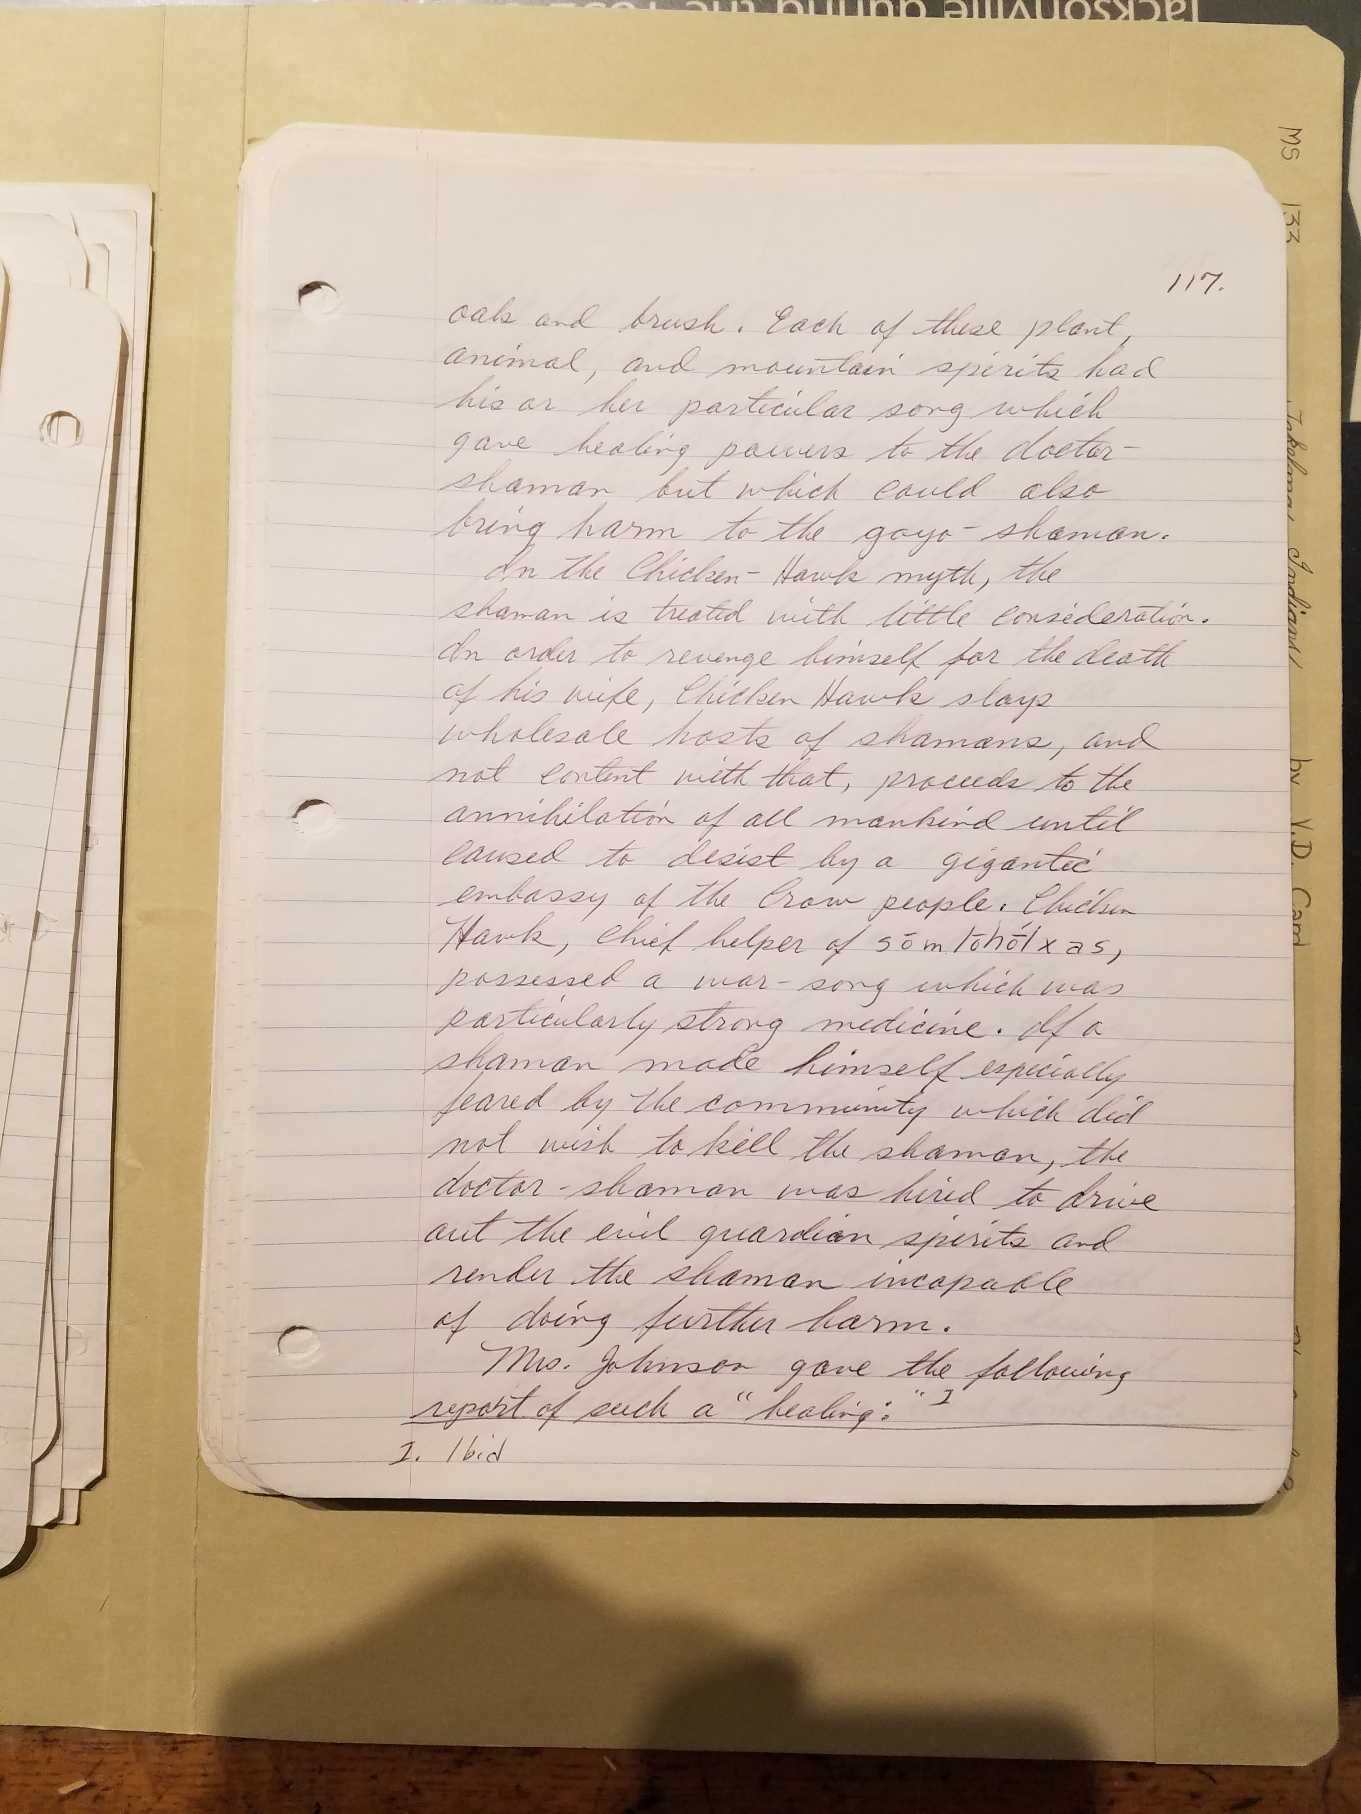 Jacksonville during the 1852
MS 133 "Takelma Indians" by V.D. Card
117.
oak and brush. Each of these plant,
animal, and mountain spirits had
his or her particular song which
gave healing powers to the doctor-
shaman but which could also
bring harm to the goyo-shaman.
In the Chicken-Hawk myth, the
shaman is treated with little consideration.
In order to revenge himself for the death
of his wife, Chicken Hawk slays
wholesale hosts of shamans, and
not content with that, proceeds to the
annihilation of all mankind until
caused to desist by a gigantic
embassy of the Crow people. Chicken
Hawk, chief helper of
possessed a war-song which was
particularly strong medicine. If a
shaman made himself especially
feared by the community which did
not wish to kill the shaman, the
doctor-shaman was hired to drive
out the evil guardian spirits and
render the shaman incapable
of doing further harm.
Mrs. Johnson gave the following
report of such a "healing:" I
I. Ibid